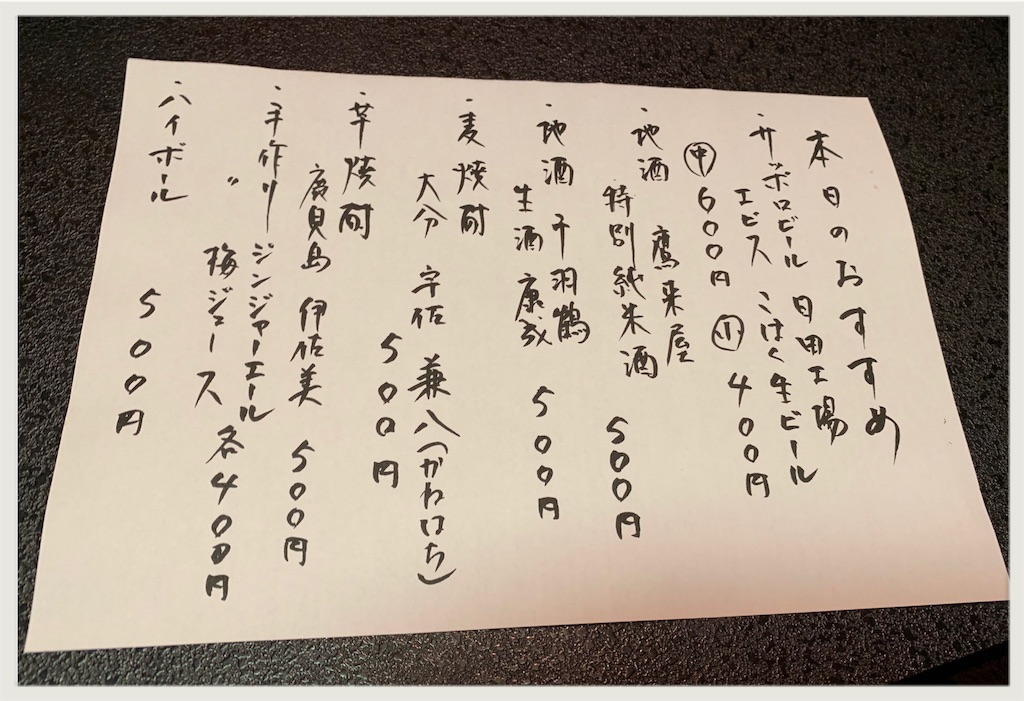 本日のおすすめ
・サッポロビール 日田工場
エビス こはく生ビール
㊥600円 ㊙小 400円
・地酒 鷹来屋
特別純米酒 500円
・地酒 千羽鶴
生酒 康成 500円
・麦焼酎
大分 宇佐 兼八(かねはち)
500円
・芋焼酎
鹿児島 伊佐美 500円
・手作り ジンジャーエール
〃 梅ジュース 各400円
・ハイボール 500円